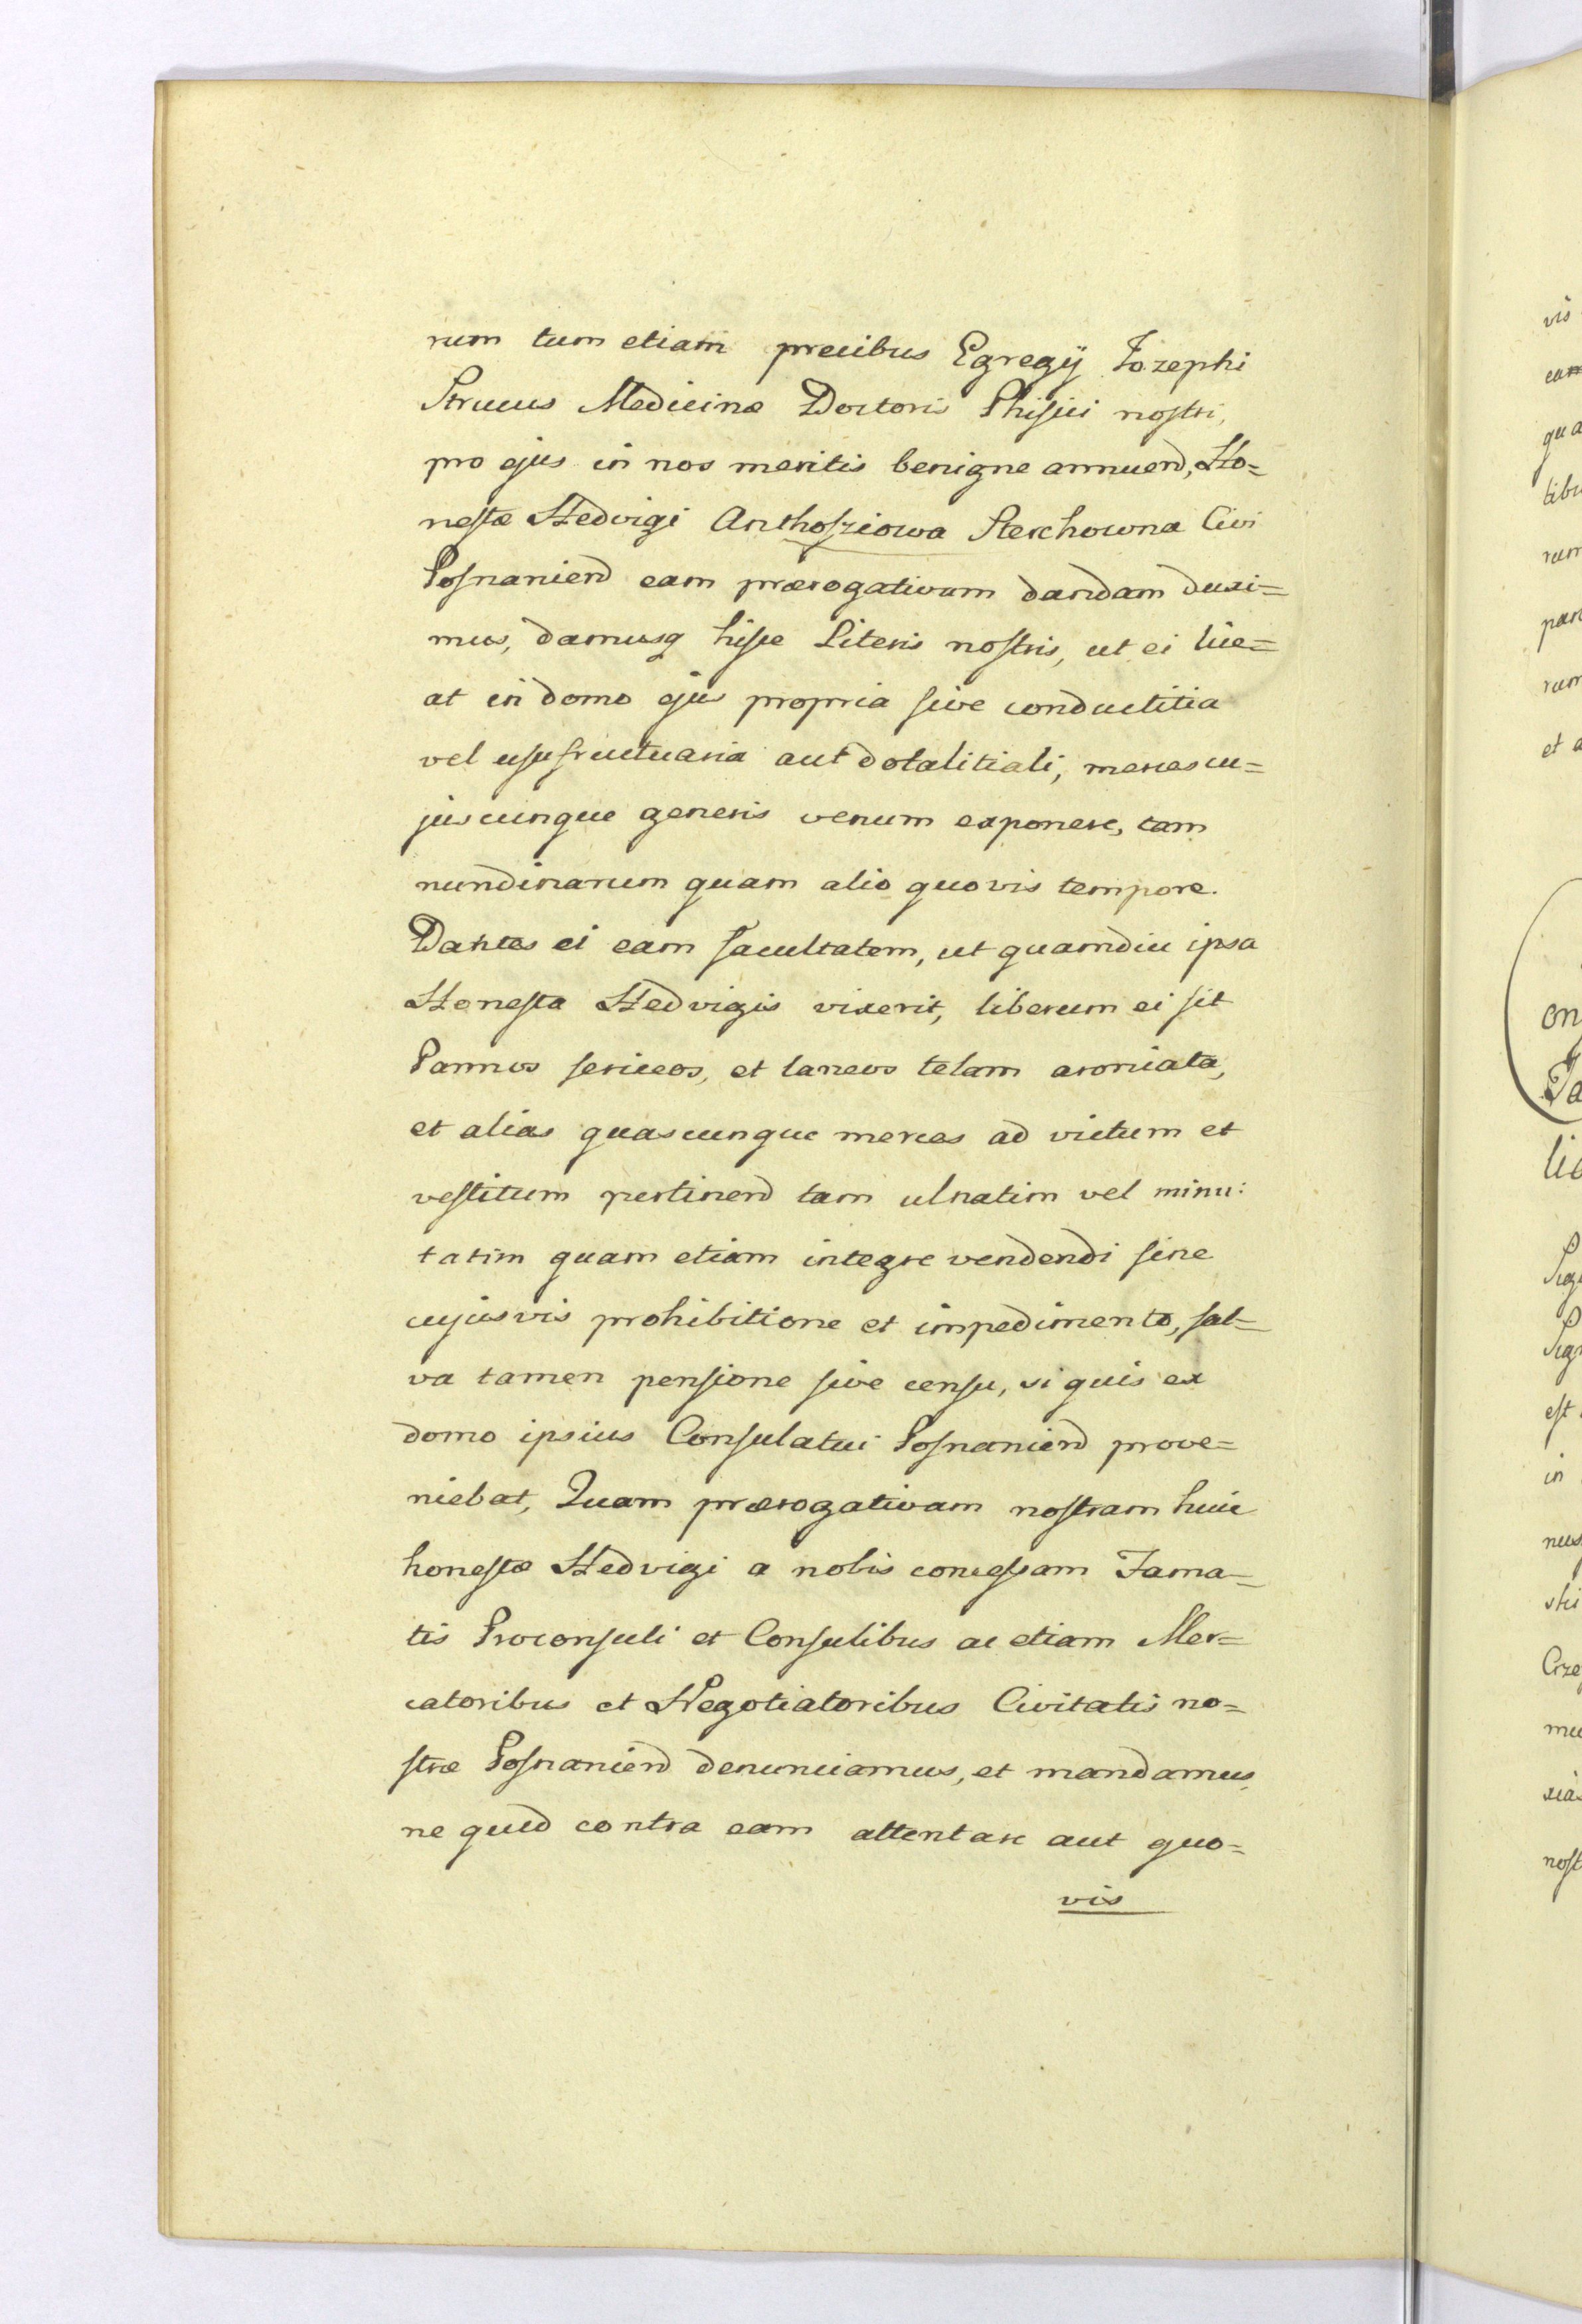 rum tum etiam precibus Egregÿ Jozephi
Strucus Medicinæ Doctoris Phisici nostri,
pro ejus in nos meritis benigne annuend, Ho=
nestæ Hedvigi Anthosziowa Sterchowna Civi
Posnaniend eam prærogativam dandam duxi=
mus, damusq hisce Literis nostris, ut ei lice=
at in domo ejus propria sive conductitia
vel usufructuaria aut dotalitiali, merces cu=
juscunque generis venum exponere, tam
nundinarum quam alio quovis tempore.
Dantes ei eam facultatem, ut quamdiu ipsa
Honesta Hedvigis vixerit, liberum ei sit
Pannos sericeos, et laneos telam aromata,
et alias quascunque merces ad victum et
vestitum pertinend tam ulnatim vel minu:
tatim quam etiam integre vendendi sine
cujusvis prohibitione et impedimento, sal=
va tamen pensione sive censu, si quis ex
domo ipsius Consulatui Posnaniend prove=
niebat, Quam prærogativam nostram huic
honestæ Hedvigi a nobis concessam Fama=
tis Proconsuli et Consulibus ac etiam Mer=
catoribus et Negotiatoribus Civitatis no=
stræ Posnaniend denunciamus, et mandamus,
ne quid contra eam attentare aut quo=
vis